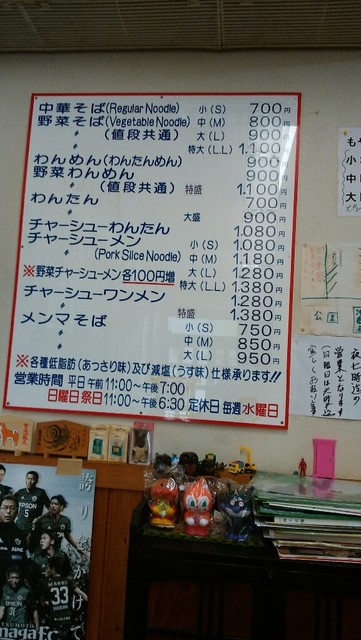 中華そば(Regular Noodle) 小(S) 700円
野菜そば(Vegetable Noodle) 中(M) 800円
〃 (値段共通) 大(L) 900円
特大(L.L) 1.100円
わんめん(わんたんめん) 900円
野菜わんめん 900円
〃 (値段共通) 特盛 1.100円
わんたん 700円
〃 大盛 900円
チャーシューわんたん 1.080円
チャーシューメン 小(S) 1.080円
〃 (Pork Slice Noodle) 中(M) 1.180円
※野菜チャーシューメン各100円増 大(L) 1.280円
〃 特大(L.L) 1.380円
チャーシューワンメン 1.280円
〃 特盛 1.380円
メンマそば 小(S) 750円
〃 中(M) 850円
〃 大(L) 950円
※各種低脂肪(あっさり味)及び減塩(うす味)仕様承ります!!
営業時間 平日午前11:00〜午後7:00
日曜日祭日11:00〜午後6:30 定休日毎週水曜日
小
中
大
公園
誇り
EPSON
33
naga F.C.